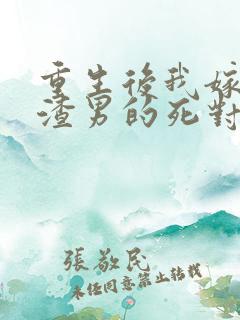 重生後我嫁
渣男的死對
張敬民
未經同意禁止轉載